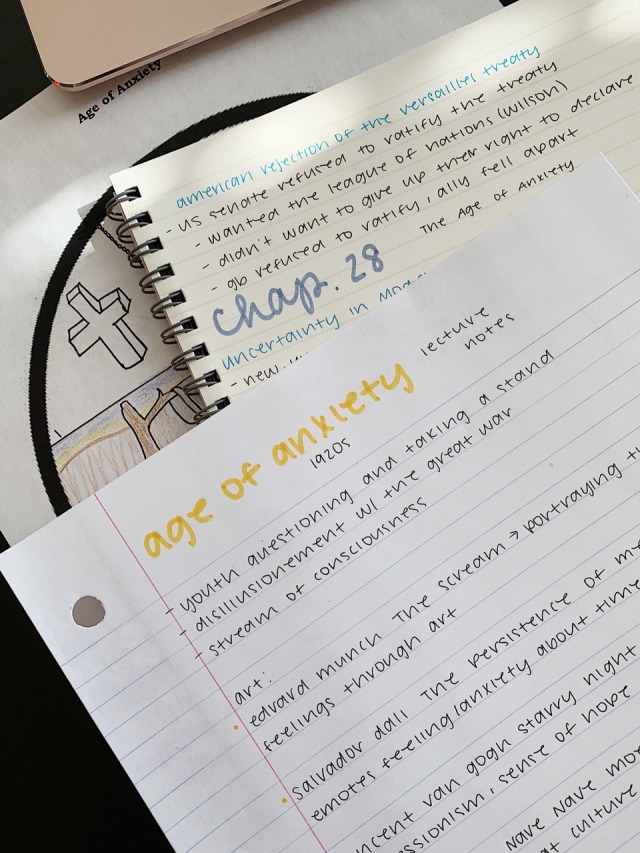 Age of Anxiety
american rejection of the versailles treaty
- US senate refused to ratify the treaty
- wanted the league of nations (wilson)
- didn't want to give up their right to declare
- gb refused to ratify, ally fell apart
chap. 28 The Age of Anxiety
uncertainty in
- new
age of anxiety lecture notes
1920s
- youth questioning and taking a stand
- disillusionement w/ the great war
- stream of consciousness
art:
• edvard munch The scream → portraying
feelings through art
• salvador dali The persistence of
emotes feeling/anxiety about time
van gogh starry night
sense of hope
nave nave
culture